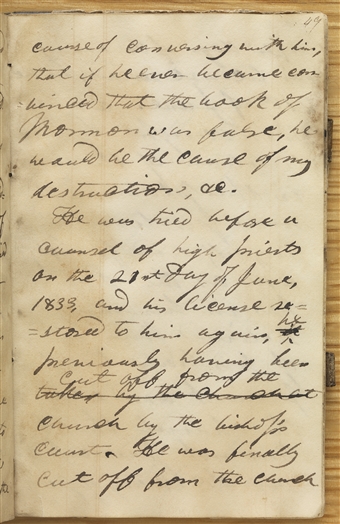 49
cause of conversing with him,
that if he ever became con
vinced that the book of
Mormon was false, he
would be the cause of my
destruction, &c.
He was tried before a
counsel of high priests
on the 21st day of June,
1833, and his license re=
=stored to him again, he
previously having been
cut off from the
taken by the church at
church by the bishop's
court. He was finally
cut off from the church